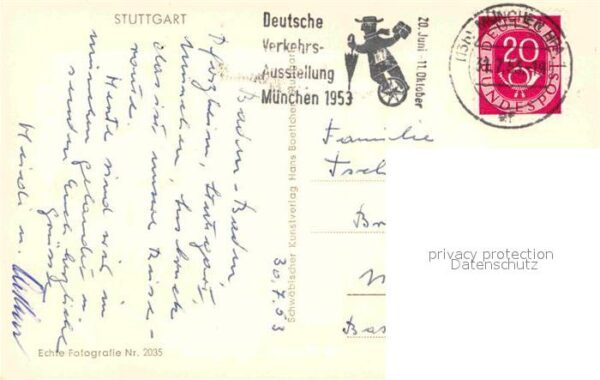 STUTTGART
Deutsche
Verkehrs-
Ausstellung
München 1953
20. Juni - 11. Oktober
MÜNCHEN
DEUTSCHE
BUNDESPOST
20
Baden-Baden,
Pforzheim, Stuttgart,
München, Innsbruck
das ist unsere Reise-
route.
Heute sind wir in
München gelandet u.
senden Euch herzliche
Grüsse
Heidi u.
30.7.53
Familie
Tsch
Br
M
Bas
Schwäbischer Kunstverlag Hans Boettcher Stuttgart
Echte Fotografie Nr. 2035
privacy protection
Datenschutz